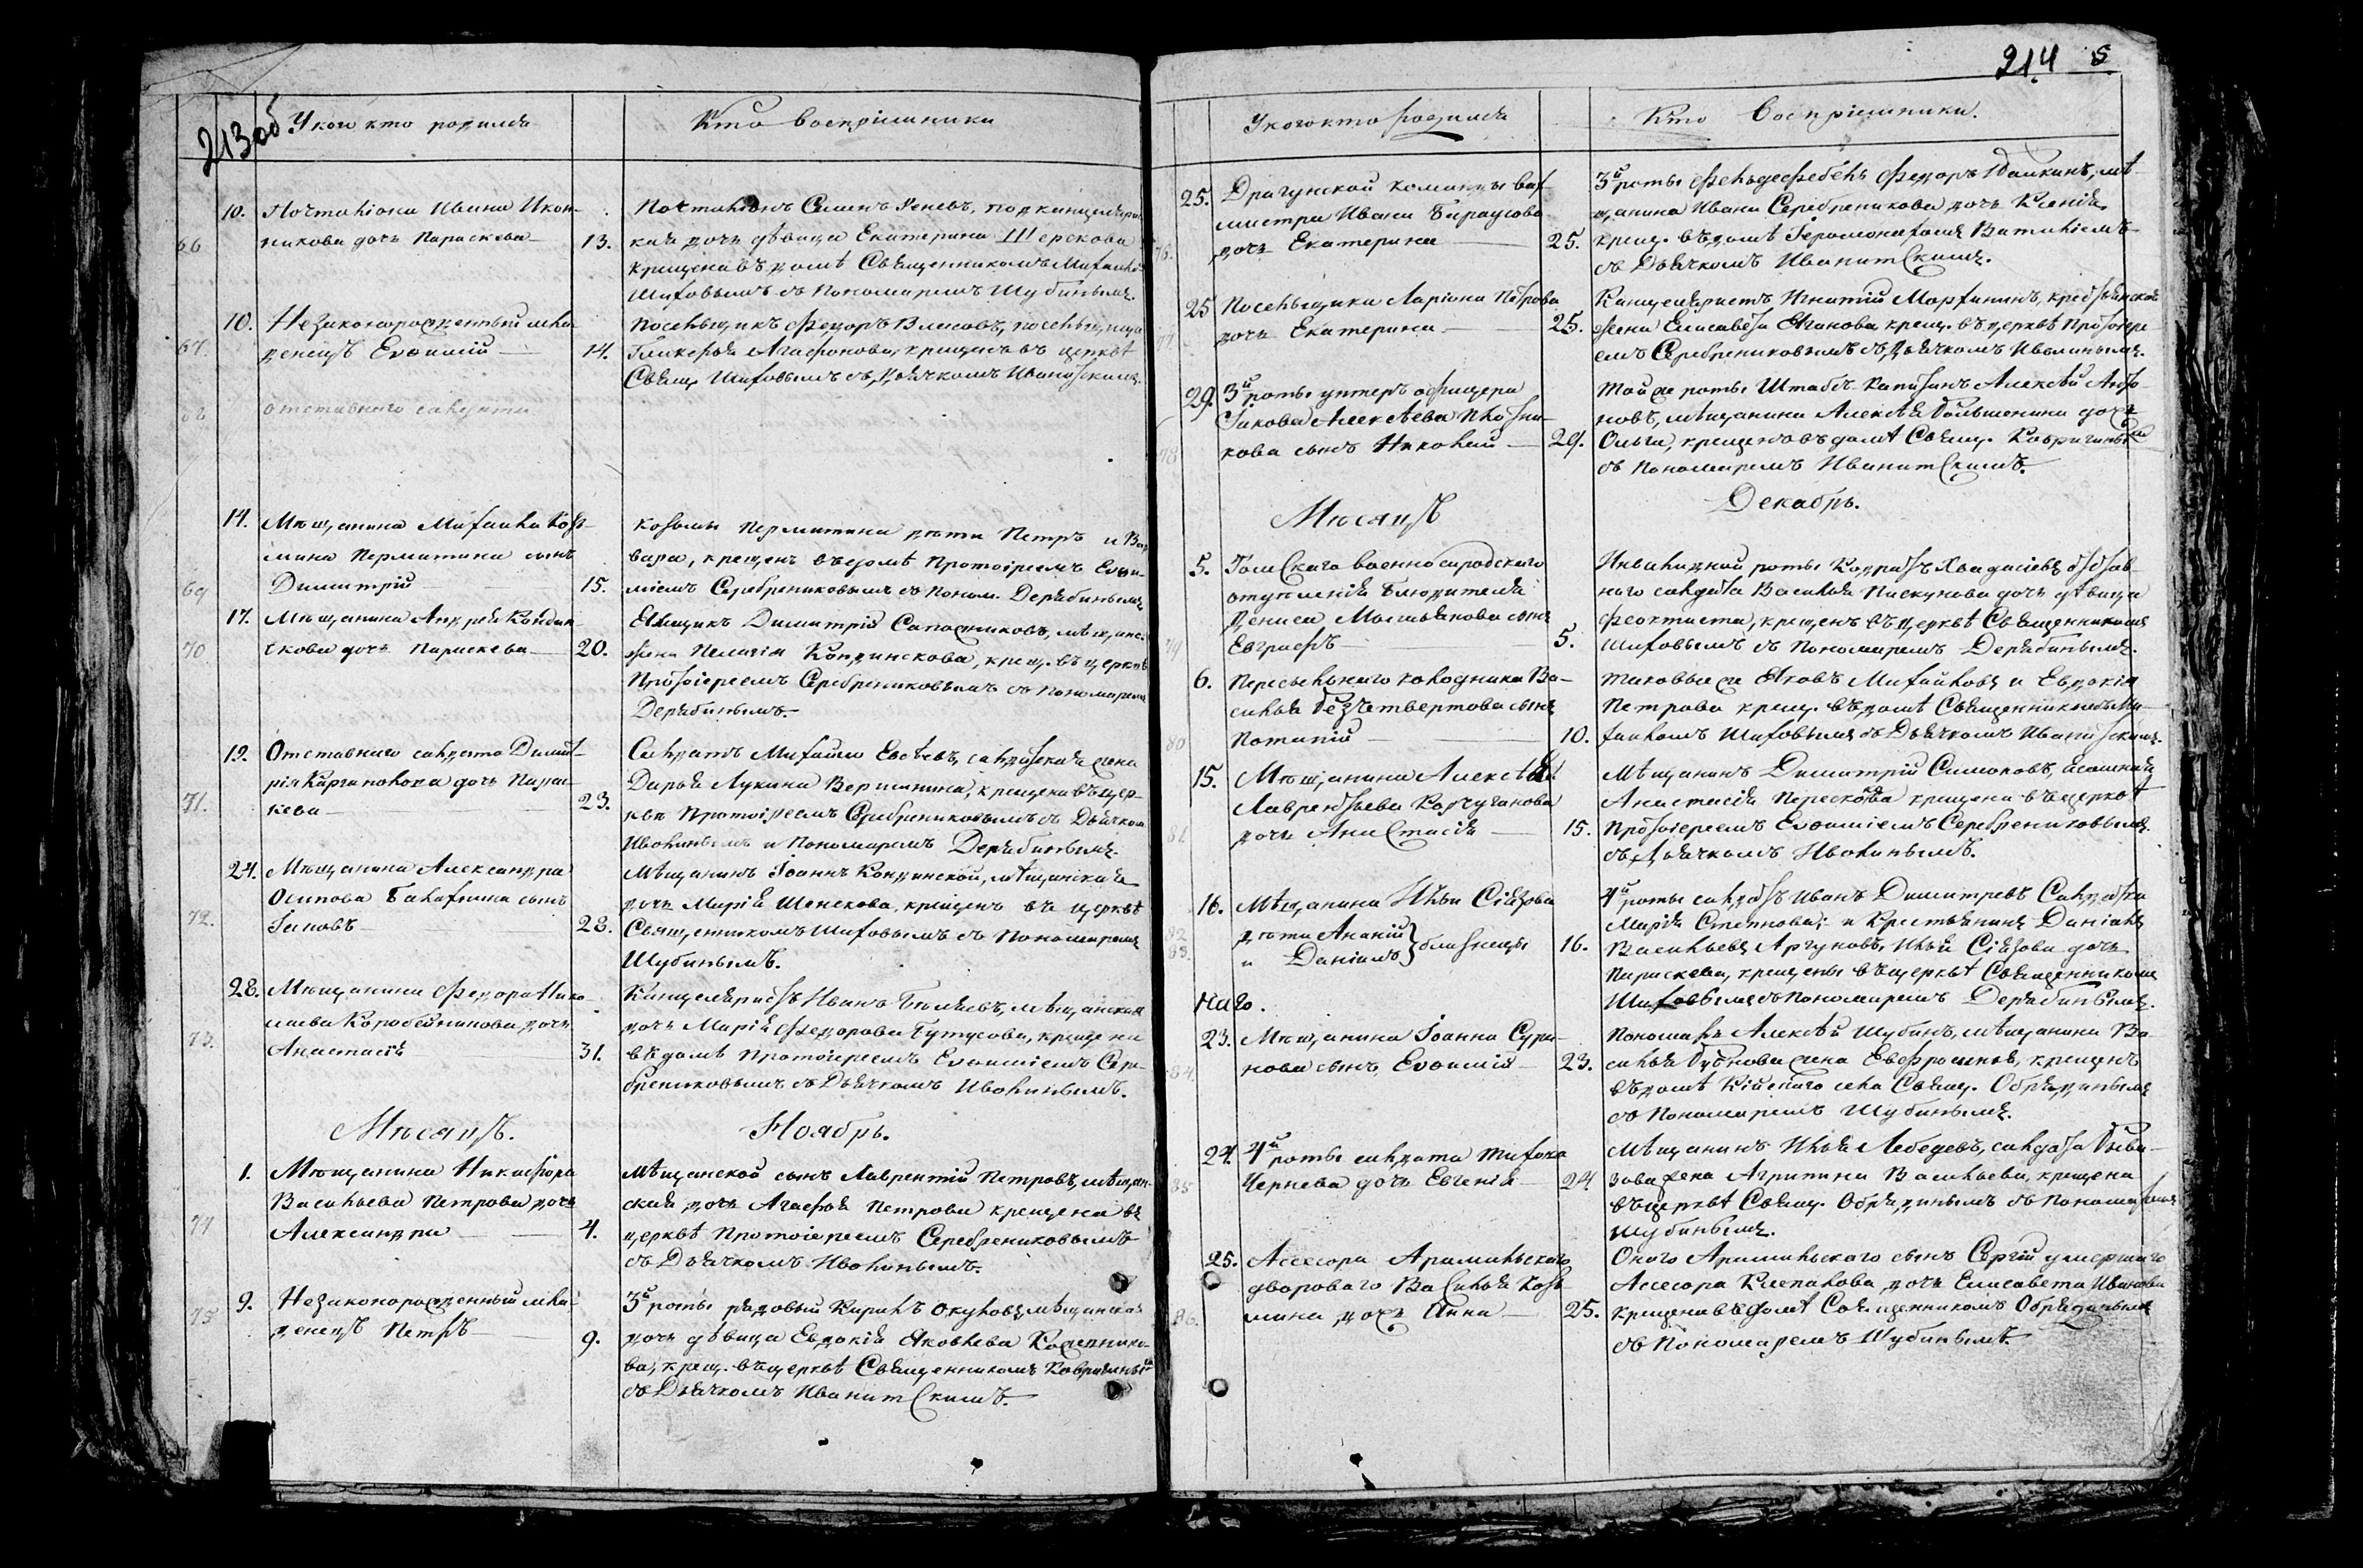 213 об
У кого кто родился
Кто воспріемники
66
10.
Почталіона Ивана Икон-
никова дочь Параскева
13.
Почталіонъ Семенъ Реневъ, подканцеляр
ская дочь дѣвица Екатерина
крещена въ домѣ Священникомъ Михаило
Шиховымъ съ Пономаремъ Шубинымъ.
67.
10.
Незаконорожденный мла
денецъ Евѳимій
14.
Посельщикъ Федоръ Власовъ, посельщица
Гликерья Агафонова, крещенъ въ церквѣ
Свящ. Шиховымъ съ Дьячкомъ Иванитскимъ.
68
отставнаго салдата
69
14.
Мѣщанина Михаила Козь-
мина Пермитина сынъ
Димитрій
15.
Козьмы Пермитина дѣти Петръ и Вар
вара, крещенъ въ домѣ Протоіреемъ Евѳи-
міемъ Серебрениковымъ съ Поном. Дерябинымъ
70
17.
Мѣщанина Андрея Кондин-
скова дочь Параскева
20.
Ямщикъ Димитрій Сапожниковъ, мѣщанс.
жена Пелагія Кондинскова, крещ. въ церквѣ
Протоіереемъ Серебрениковымъ съ Пономаремъ
Дерябинымъ.
71.
19.
Отставнаго салдата Димит-
рія Карпаполова дочь Парас-
кева
23.
Салдатъ Михайло Евсѣевъ, салдатская жена
Дарья Лукина Вершинина, крещена въ цер-
квѣ Протоіреемъ Серебрениковымъ съ Дьячкомъ
Иволинымъ и Пономаремъ Дерябинымъ.
72.
24.
Мѣщанина Александра
Осипова Балахнина сынъ
Іаковъ
28.
Мѣщанинъ Іоаннъ Кондинской, мѣщанская
дочь Марія Шенскова, крещенъ въ церквѣ
Священникомъ Шиховымъ съ Пономаремъ
Шубинымъ.
73.
28.
Мѣщанина Федора Нико-
лаева Коробейникова дочь
Анастасія
31.
Канцеляристъ Иванъ Бѣляевъ, мѣщанская
дочь Марія Федорова Бутусова, крещена
въ домѣ Протоіереемъ Евѳиміемъ Сере-
брениковымъ съ Дьячкомъ Иволинымъ.
Мѣсяцъ.
Ноябрь.
74
1.
Мѣщанина Никифора
Васильева Петрова дочь
Александра
4.
Мѣщанской сынъ Лаврентій Петровъ, мѣщан-
ская дочь Агафья Петрова крещена въ
церквѣ Протоіереемъ Серебрениковымъ
съ Дьячкомъ Иволинымъ.
75
9.
Незаконорожденный мла-
денецъ Петръ
9.
3й роты рядовый Кирилъ Окуловъ, мѣщанская
дочь дѣвица Евдокія Яковлева Кожевнико-
ва, крещ. въ церквѣ Священникомъ Кавригинымъ
съ Дьячкомъ Иванитскимъ.
214
У кого кто родился
Кто Воспріемники.
76.
25.
Драгунской команды вах-
мистра Ивана Бараусова
дочь Екатерина
25.
3й роты фельдфебель Федоръ Юдашкинъ, мѣ
щанина Ивана Серебреникова дочь Ксенія
крещ. въ домѣ Іеромонахомъ Виталіемъ
съ Дьячкомъ Иванитскимъ.
77
25
Посельщика Ларіона Петрова
дочь Екатерина
25.
Канцеляристъ Игнатій Марфининъ, крестьянская
жена Елисавета Яганова крещ. въ церквѣ Протоіере-
емъ Серебрениковымъ съ Дьячкомъ Иволинымъ.
78
29.
3й роты унтеръ офицера
Іакова Алексѣева Плотни-
кова сынъ Николай
29.
Той же роты Штабсъ Капитанъ Алексѣй Анто-
новъ, мѣщанина Алексѣя Большенина дочь
Ольга, крещенъ въ домѣ Свящ. Кавригинымъ
съ Пономаремъ Иванитскимъ.
Мѣсяцъ
Декабрь.
79
5.
Томскаго военно сиродскаго
отдѣленія Блюдителя
Дениса Масльянова сынъ
Евграфъ
5.
Инвалидной роты Кодратъ Хвадасіевъ отстав-
наго салдата Василья Пискунова дочь дѣвица
Феоктиста, крещенъ въ церквѣ Священникомъ
Шиховымъ съ Пономаремъ Дерябинымъ.
80
6.
Пересыльнаго колодника Ва-
силья Безчетвертова сынъ
Потапій
10.
Таковые же Яковъ Михайловъ и Евдокія
Петрова крещ. въ домѣ Священникомъ Ми-
хаиломъ Шиховымъ съ Дьячкомъ Иванитскимъ.
81
15.
Мѣщанина Алексѣя
Лаврентьева Корчуганова
дочь Анастасія
15.
Мѣщанинъ Димитрій Симоновъ,
Анастасія крещена въ церквѣ
Протоіереемъ Евѳиміемъ Серебрениковымъ
съ Дьячкомъ Иволинымъ.
82
83.
16.
Мѣщанина Ильи Сіязова
дѣти Ананій
и Даніилъ } близнецы
16.
4й роты салдатъ Иванъ Димитревъ Салдатка
Марія Степнова; и Крестьянинъ Даніилъ
Васильевъ Аргуновъ, Ильи Сіязова дочь
Параскева, крещены въ церквѣ Священникомъ
Шиховымъ съ Пономаремъ Дерябинымъ.
наго.
84.
23.
Мѣщанина Іоанна Сури-
нова сынъ Евѳимій
23.
Пономарь Алексѣй Шубинъ, мѣщанина Ва-
силья Бубнова жена Евфросинья, крещенъ
въ домѣ Кійскаго села Свящ. Обрядинымъ
съ Пономаремъ Шубинымъ.
85
24.
4й роты салдата Тихона
Чернева дочь Евгенія
24
Мѣщанинъ Илья Лебедевъ, салдата Быва-
зова жена Агрипина Васильева, крещена
въ церквѣ Свящ. Обрядинымъ съ Пономаремъ
Шубинымъ.
86.
25.
Асесора Арамильскаго
двороваго Василья Козь-
мина дочь Анна
25.
Онаго Арамильскаго сынъ Сергій умершаго
Асесора Клепакова дочь Елисавета Иванова
крещена въ домѣ Священникомъ Обрядинымъ
съ Пономаремъ Шубинымъ.